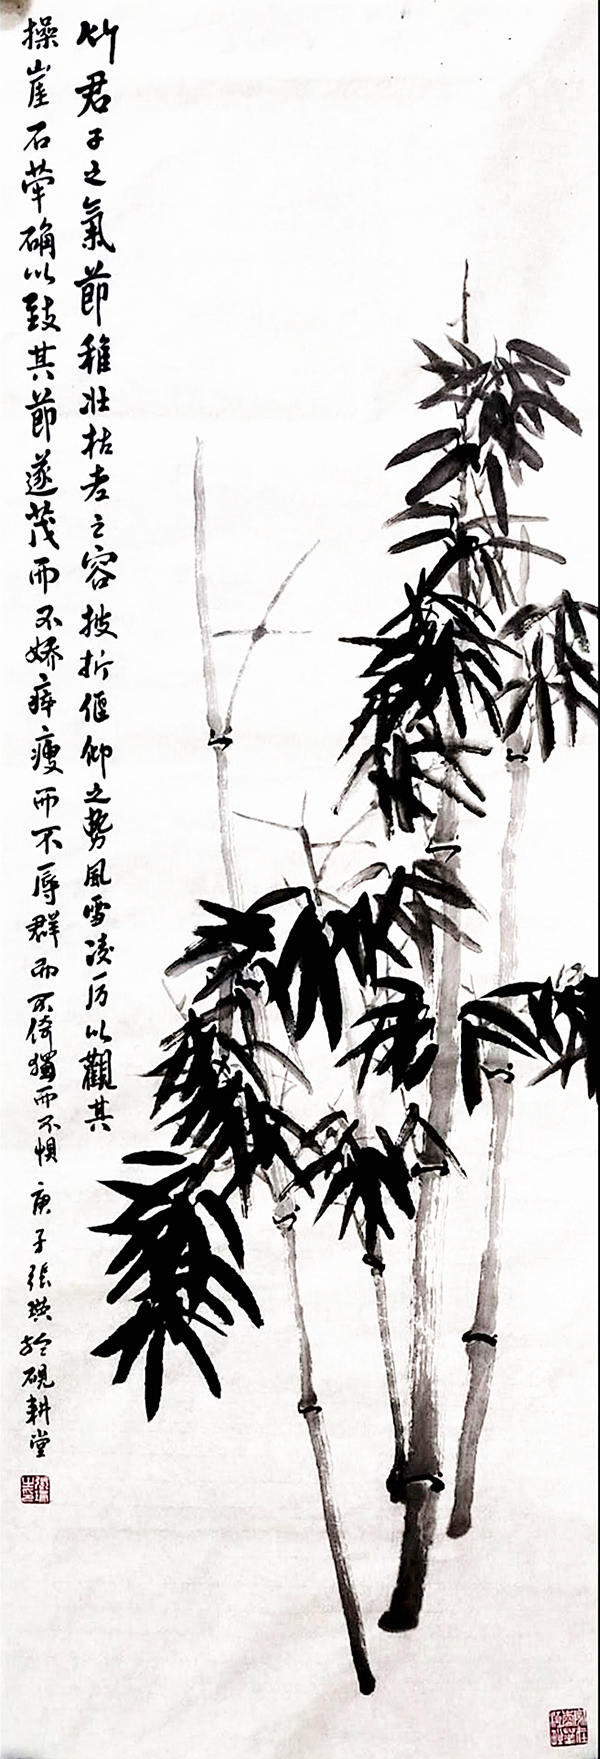 竹君子之氣節稚壯枯老之容披折偃仰之勢風雪凌厉以觀其
操崖石犖确以致其節遂茂而不嬌瘠瘦而不辱群而不倚獨而不惧 庚子張瑛於硯耕堂